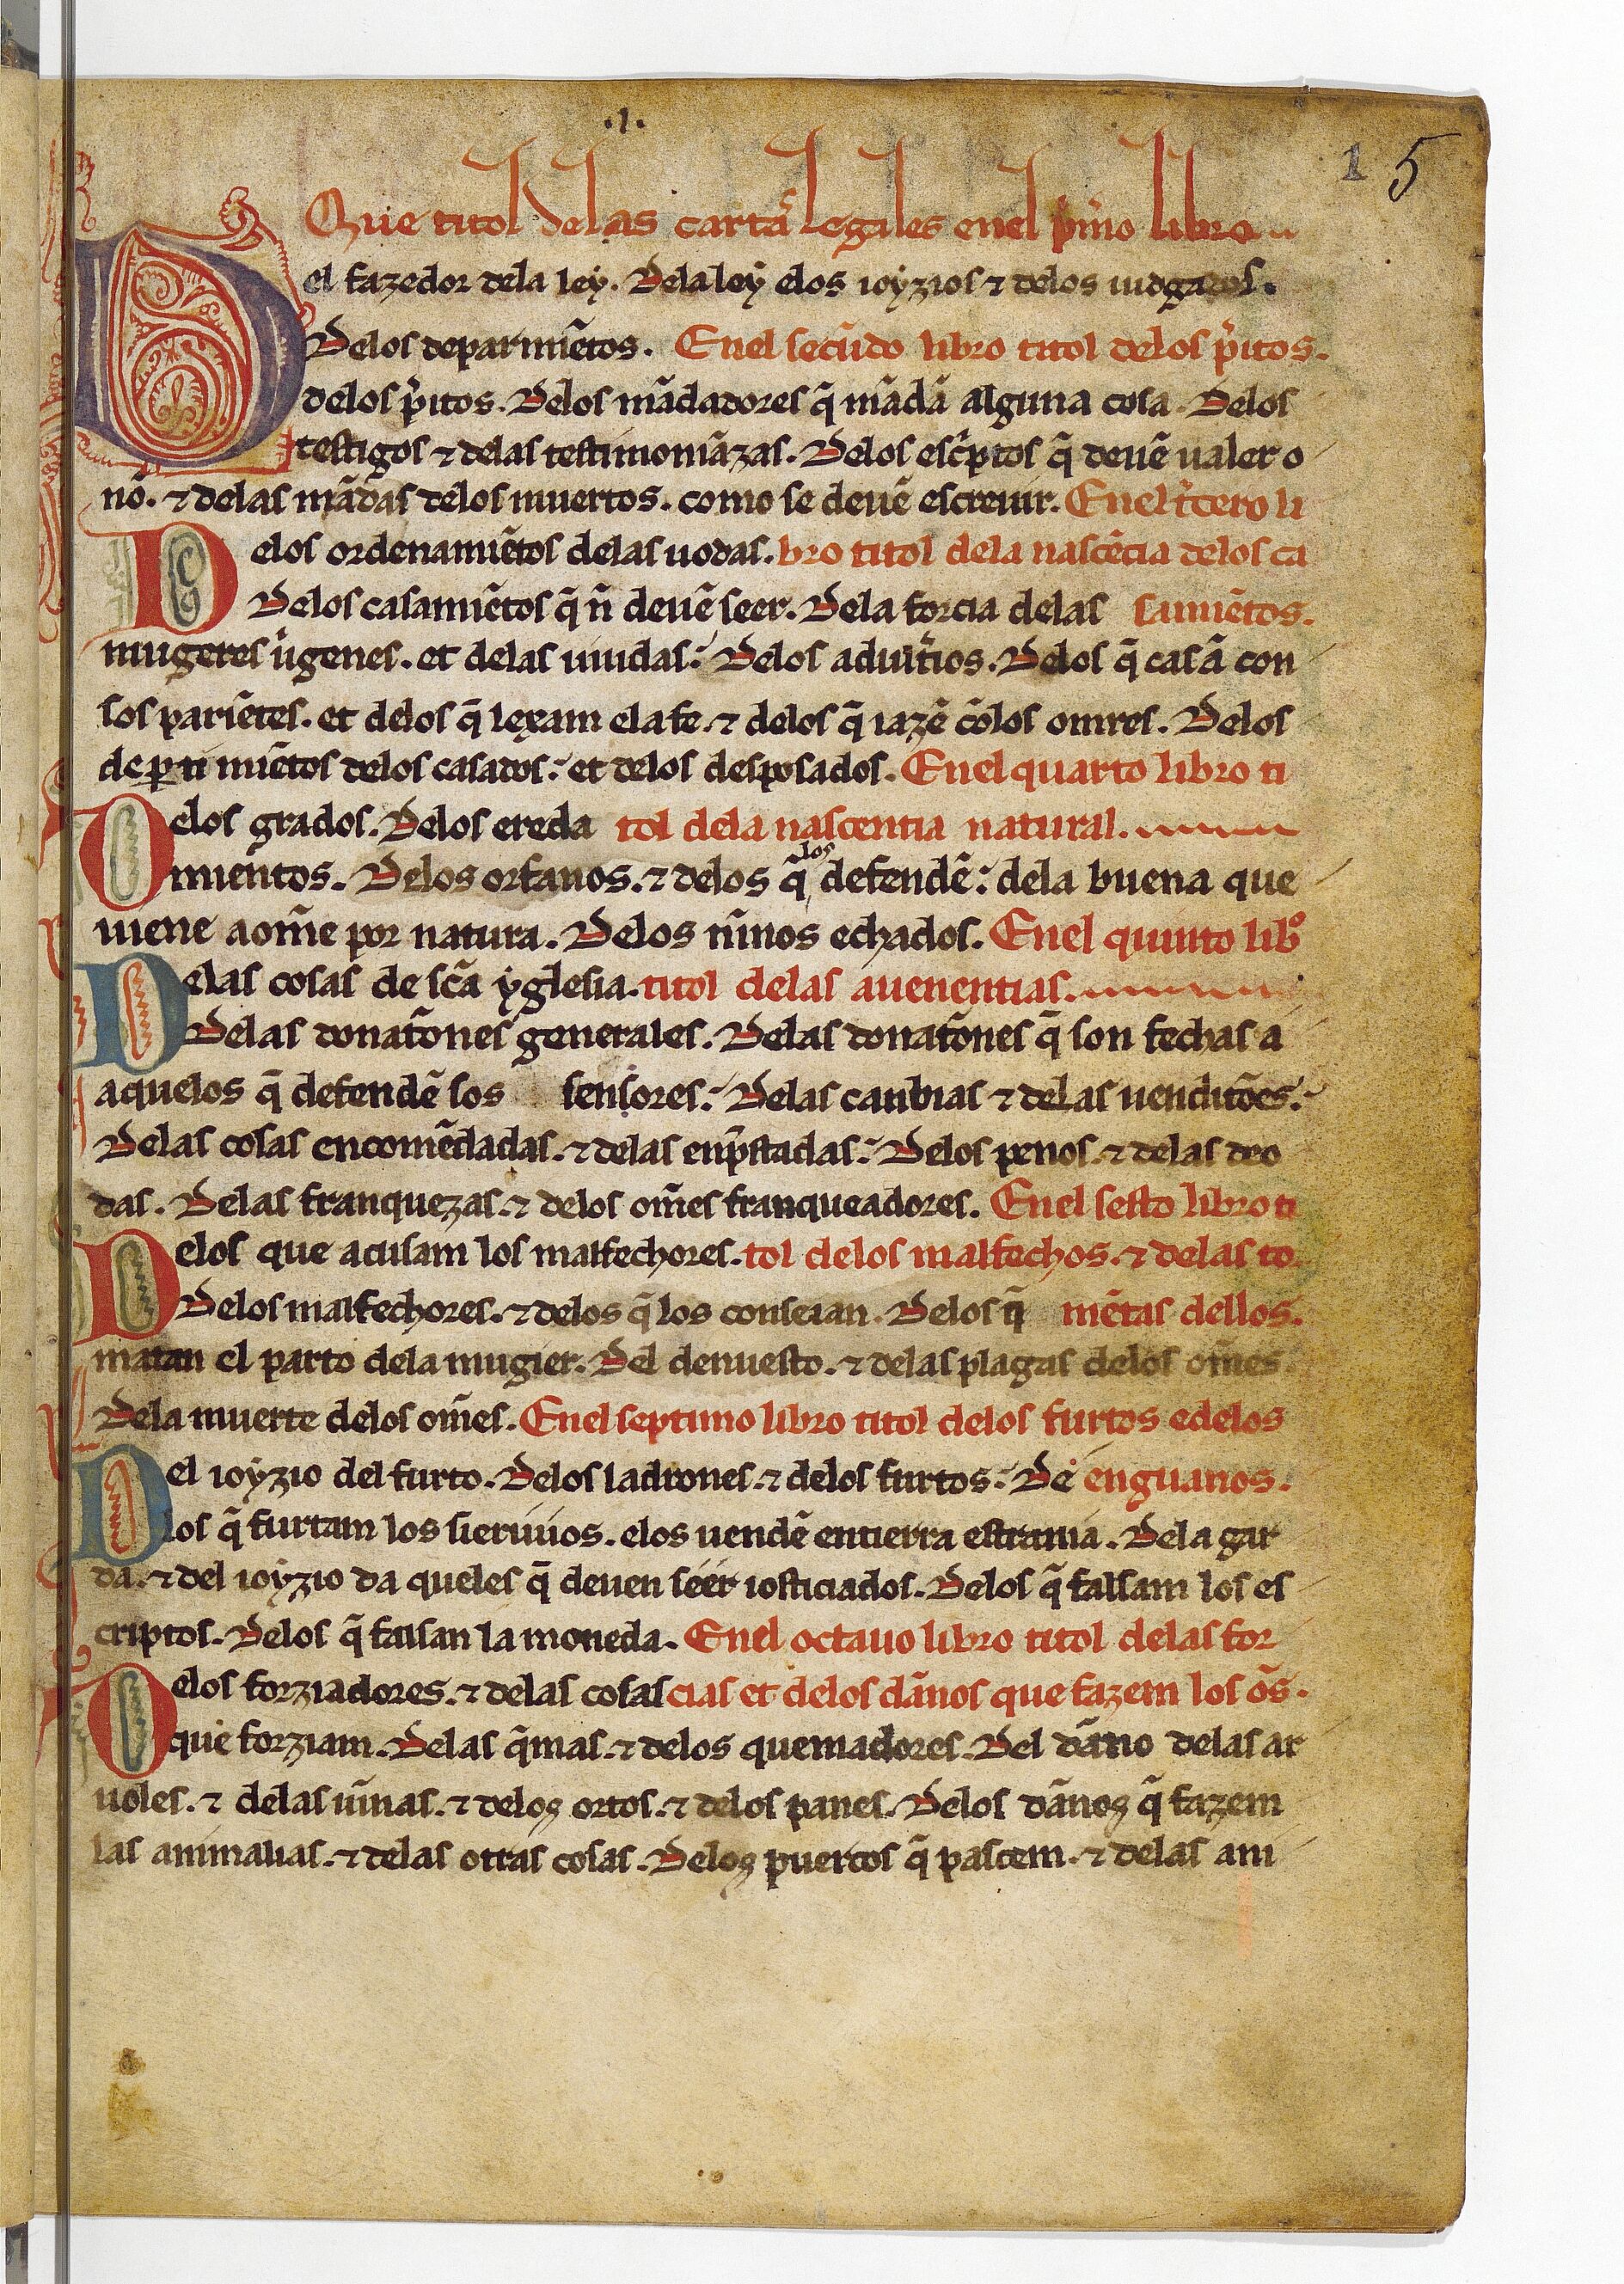 .1.
1 5
Que titol delas cartas̃ legales enel p̃mo libro
Del fazedor dela ley. Dela ley elos ioyzios ⁊ delos iudgados.
Delos deparmiẽtos. Enel secũdo libro titol delos p̃itos.
delos p̃itos. Delos mãdadores q̃ mãdã alguna cosa. Delos
testigos ⁊ delas testimoniãzas. Delos esc̃ptos q̃ deuẽ ualer o
nõ. ⁊ delas mãdas delos muertos. como se deuẽ escreuir. Enel t̃cero li
Delos ordenamiẽtos delas uodas. bro titol dela nascẽcia delos ca
Delos casamiẽtos q̃ ñ deuẽ seer. Dela forcia delas samiẽtos.
mugeres uĩgenes. et delas uiudas: Delos adult̃ios. Delos q̃ casã con
sos pariẽtes. et delos q̃ lexam ela fe. ⁊ delos q̃ iazẽ cõlos omres. Delos
deꝑti miẽtos delos casados: et delos desposados. Enel quarto libro ti
Delos grados. Delos ereda tol dela nascentia natural.
mientos. Delos orfanos. ⁊ delos q̃ los defendẽ: dela buena que
uiene aom̃e por natura. Delos nĩnos echados. Enel quinto libº
Delas cosas de sc̃a yglesia. titol delas auenentias.
Delas donatõnes generales. Delas donatõnes q̃ son fechas a
aquelos q̃ defendẽ sos seniores: Delas canbias ⁊ delas uenditões:
Delas cosas encomẽdadas. ⁊ delas enp̃stadas: Delos penos. ⁊ delas deo
das. Delas franquezas. ⁊ delos om̃es franqueadores. Enel sesto libro ti
Delos que acusam los malfechores. tol delos malfechos. ⁊ delas to
Delos malfechores. ⁊ delos q̃ los conseian. Delos q̃ mẽtas dellos.
matan el parto dela mugier. Del denuesto. ⁊ delas plagas delos om̃es.
Dela muerte delos om̃es. Enel septimo libro titol delos furtos edelos
Del ioyzio del furto. Delos ladrones. ⁊ delos furtos: De enguanos.
los q̃ furtam los sieruuos. elos uendẽ entierra estrania. Dela gar
da. ⁊ del ioyzio da queles q̃ deuen séér iosticiados. Delos q̃ falsam los es
criptos. Delos q̃ falsan la moneda. Enel octauo libro titol delas for
Delos forziadores. ⁊ delas cosas cias et delos dãnos que fazem los õs.
que forziam. Delas q̃mas. ⁊ delos quemadores. Del dãno delas ar
uoles. ⁊ delas uĩnas. ⁊ delos ortos. ⁊ delos panes. Delos dãnos q̃ fazem
las animalias. ⁊ delas otras cosas. Delos puercos q̃ pascem. ⁊ delas ani